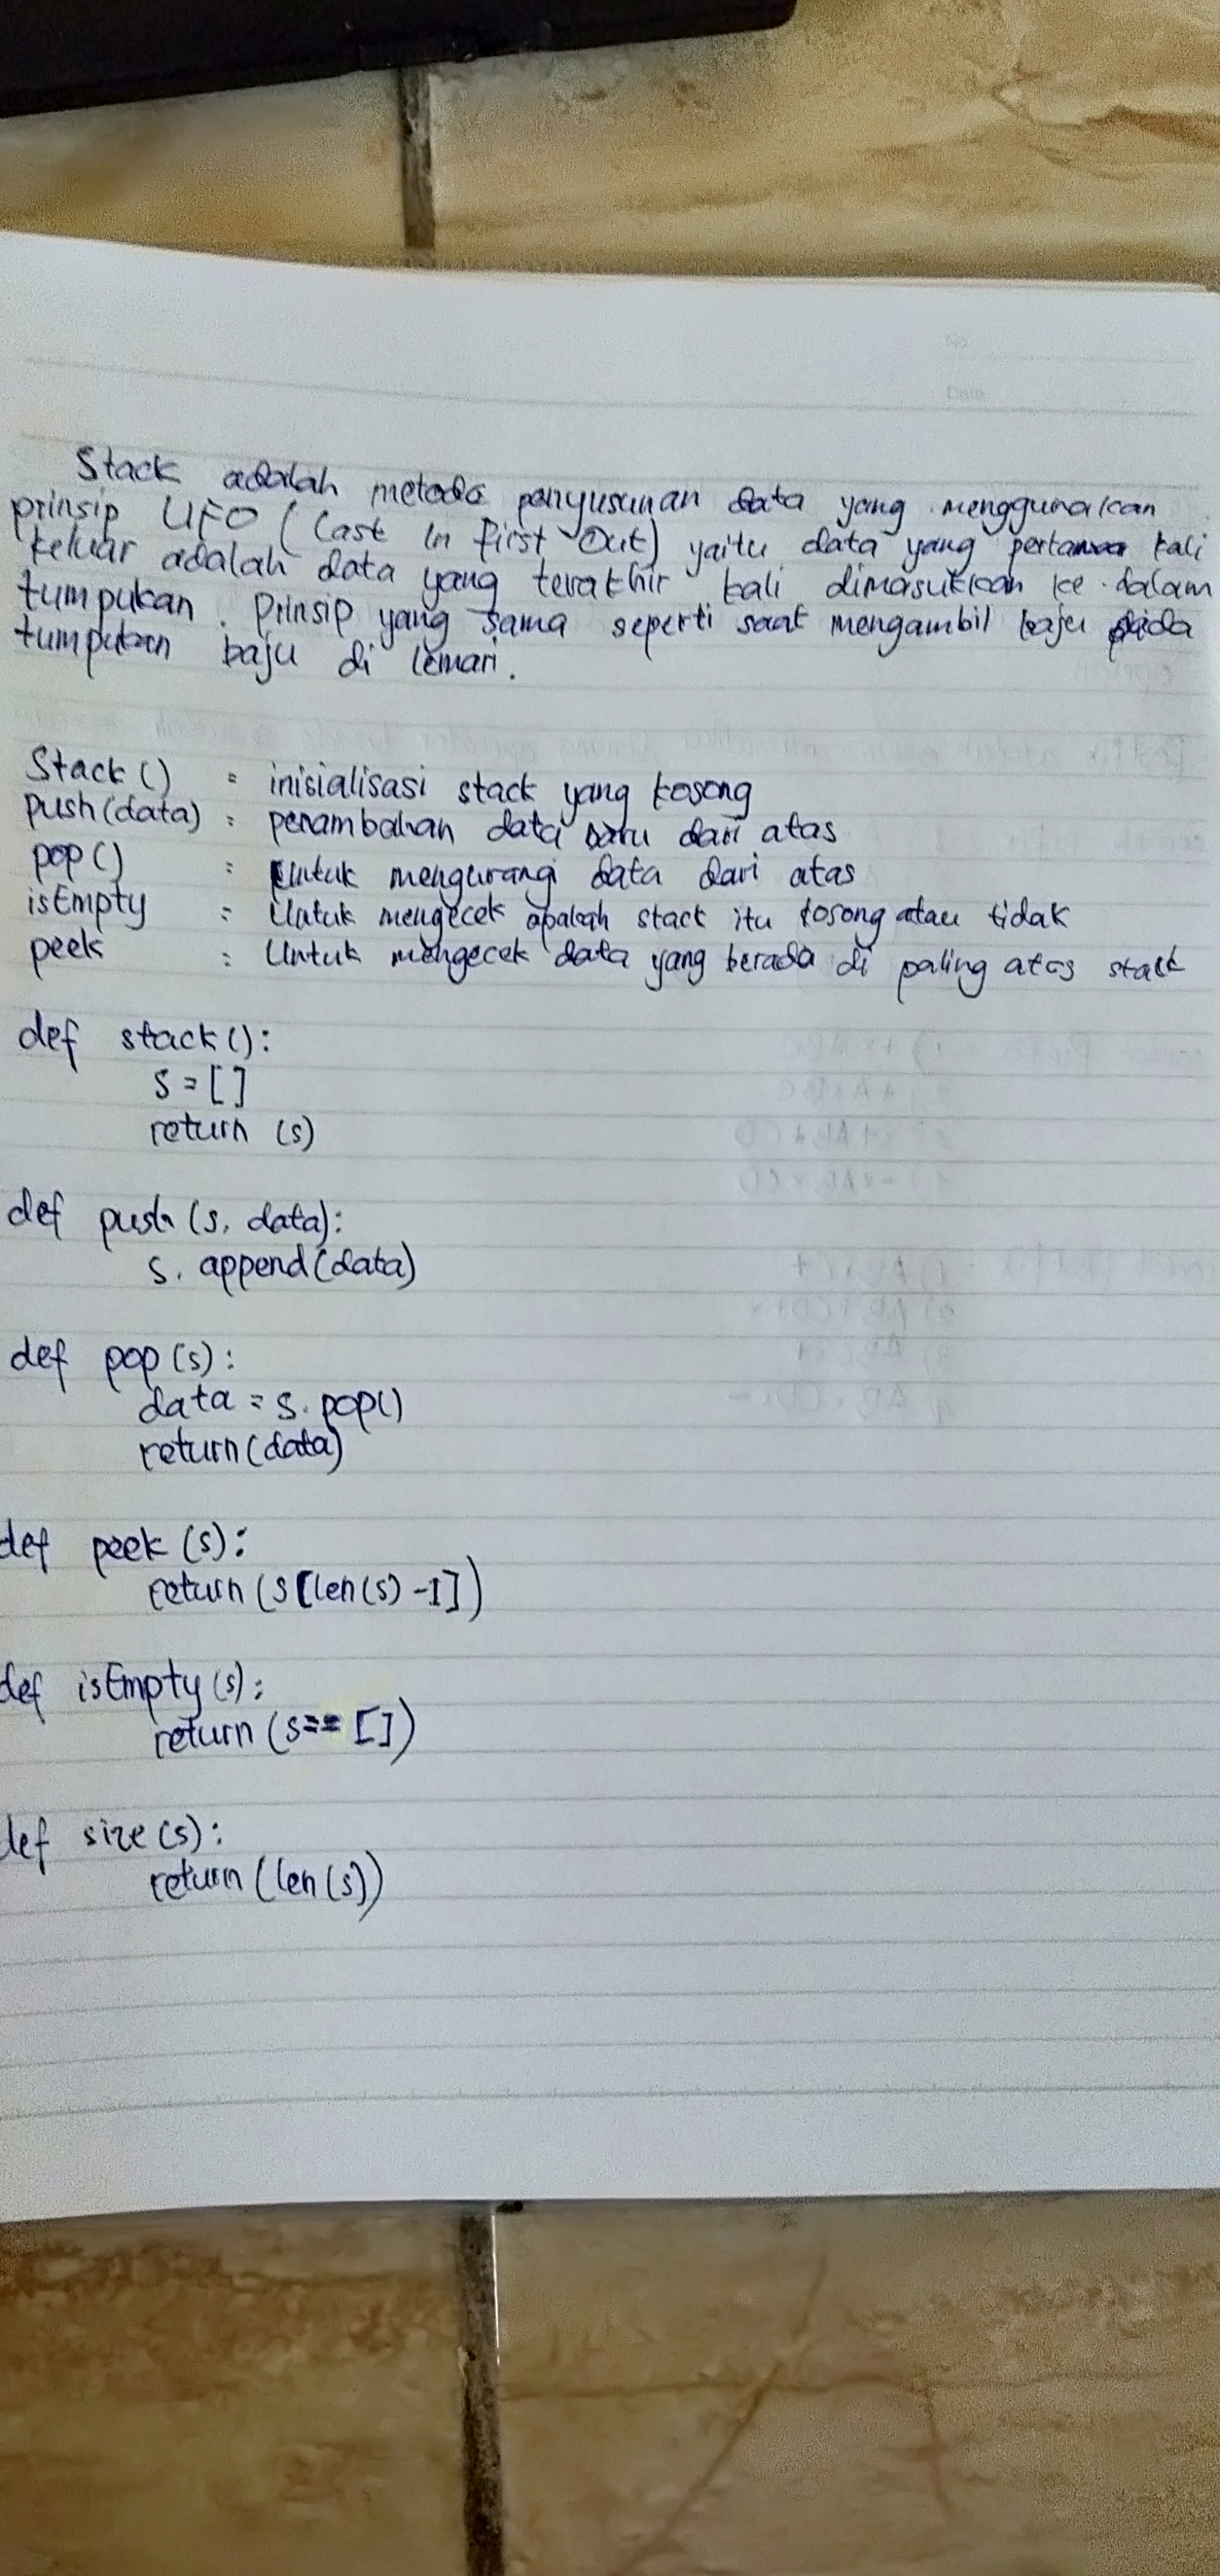 Stack adalah metode penyusunan data yang menggunakan
prinsip LIFO (Last In First Out) yaitu data yang pertama kali
keluar adalah data yang terakhir kali dimasukkan ke dalam
tumpukan. Prinsip yang sama seperti saat mengambil baju pada
tumpukan baju di lemari.
Stack() = inisialisasi stack yang kosong
push(data) = penambahan data baru dari atas
pop() = Untuk mengurangi data dari atas
isEmpty = Untuk mengecek apakah stack itu kosong atau tidak
peek : Untuk mengecek data yang berada di paling atas stack
def stack():
s = []
return (s)
def push (s, data):
s. append(data)
def pop (s):
data = s. pop()
return (data)
def peek (s):
return (s[len(s) -1])
def isEmpty (s):
return (s == [])
def size (s):
return (len (s))